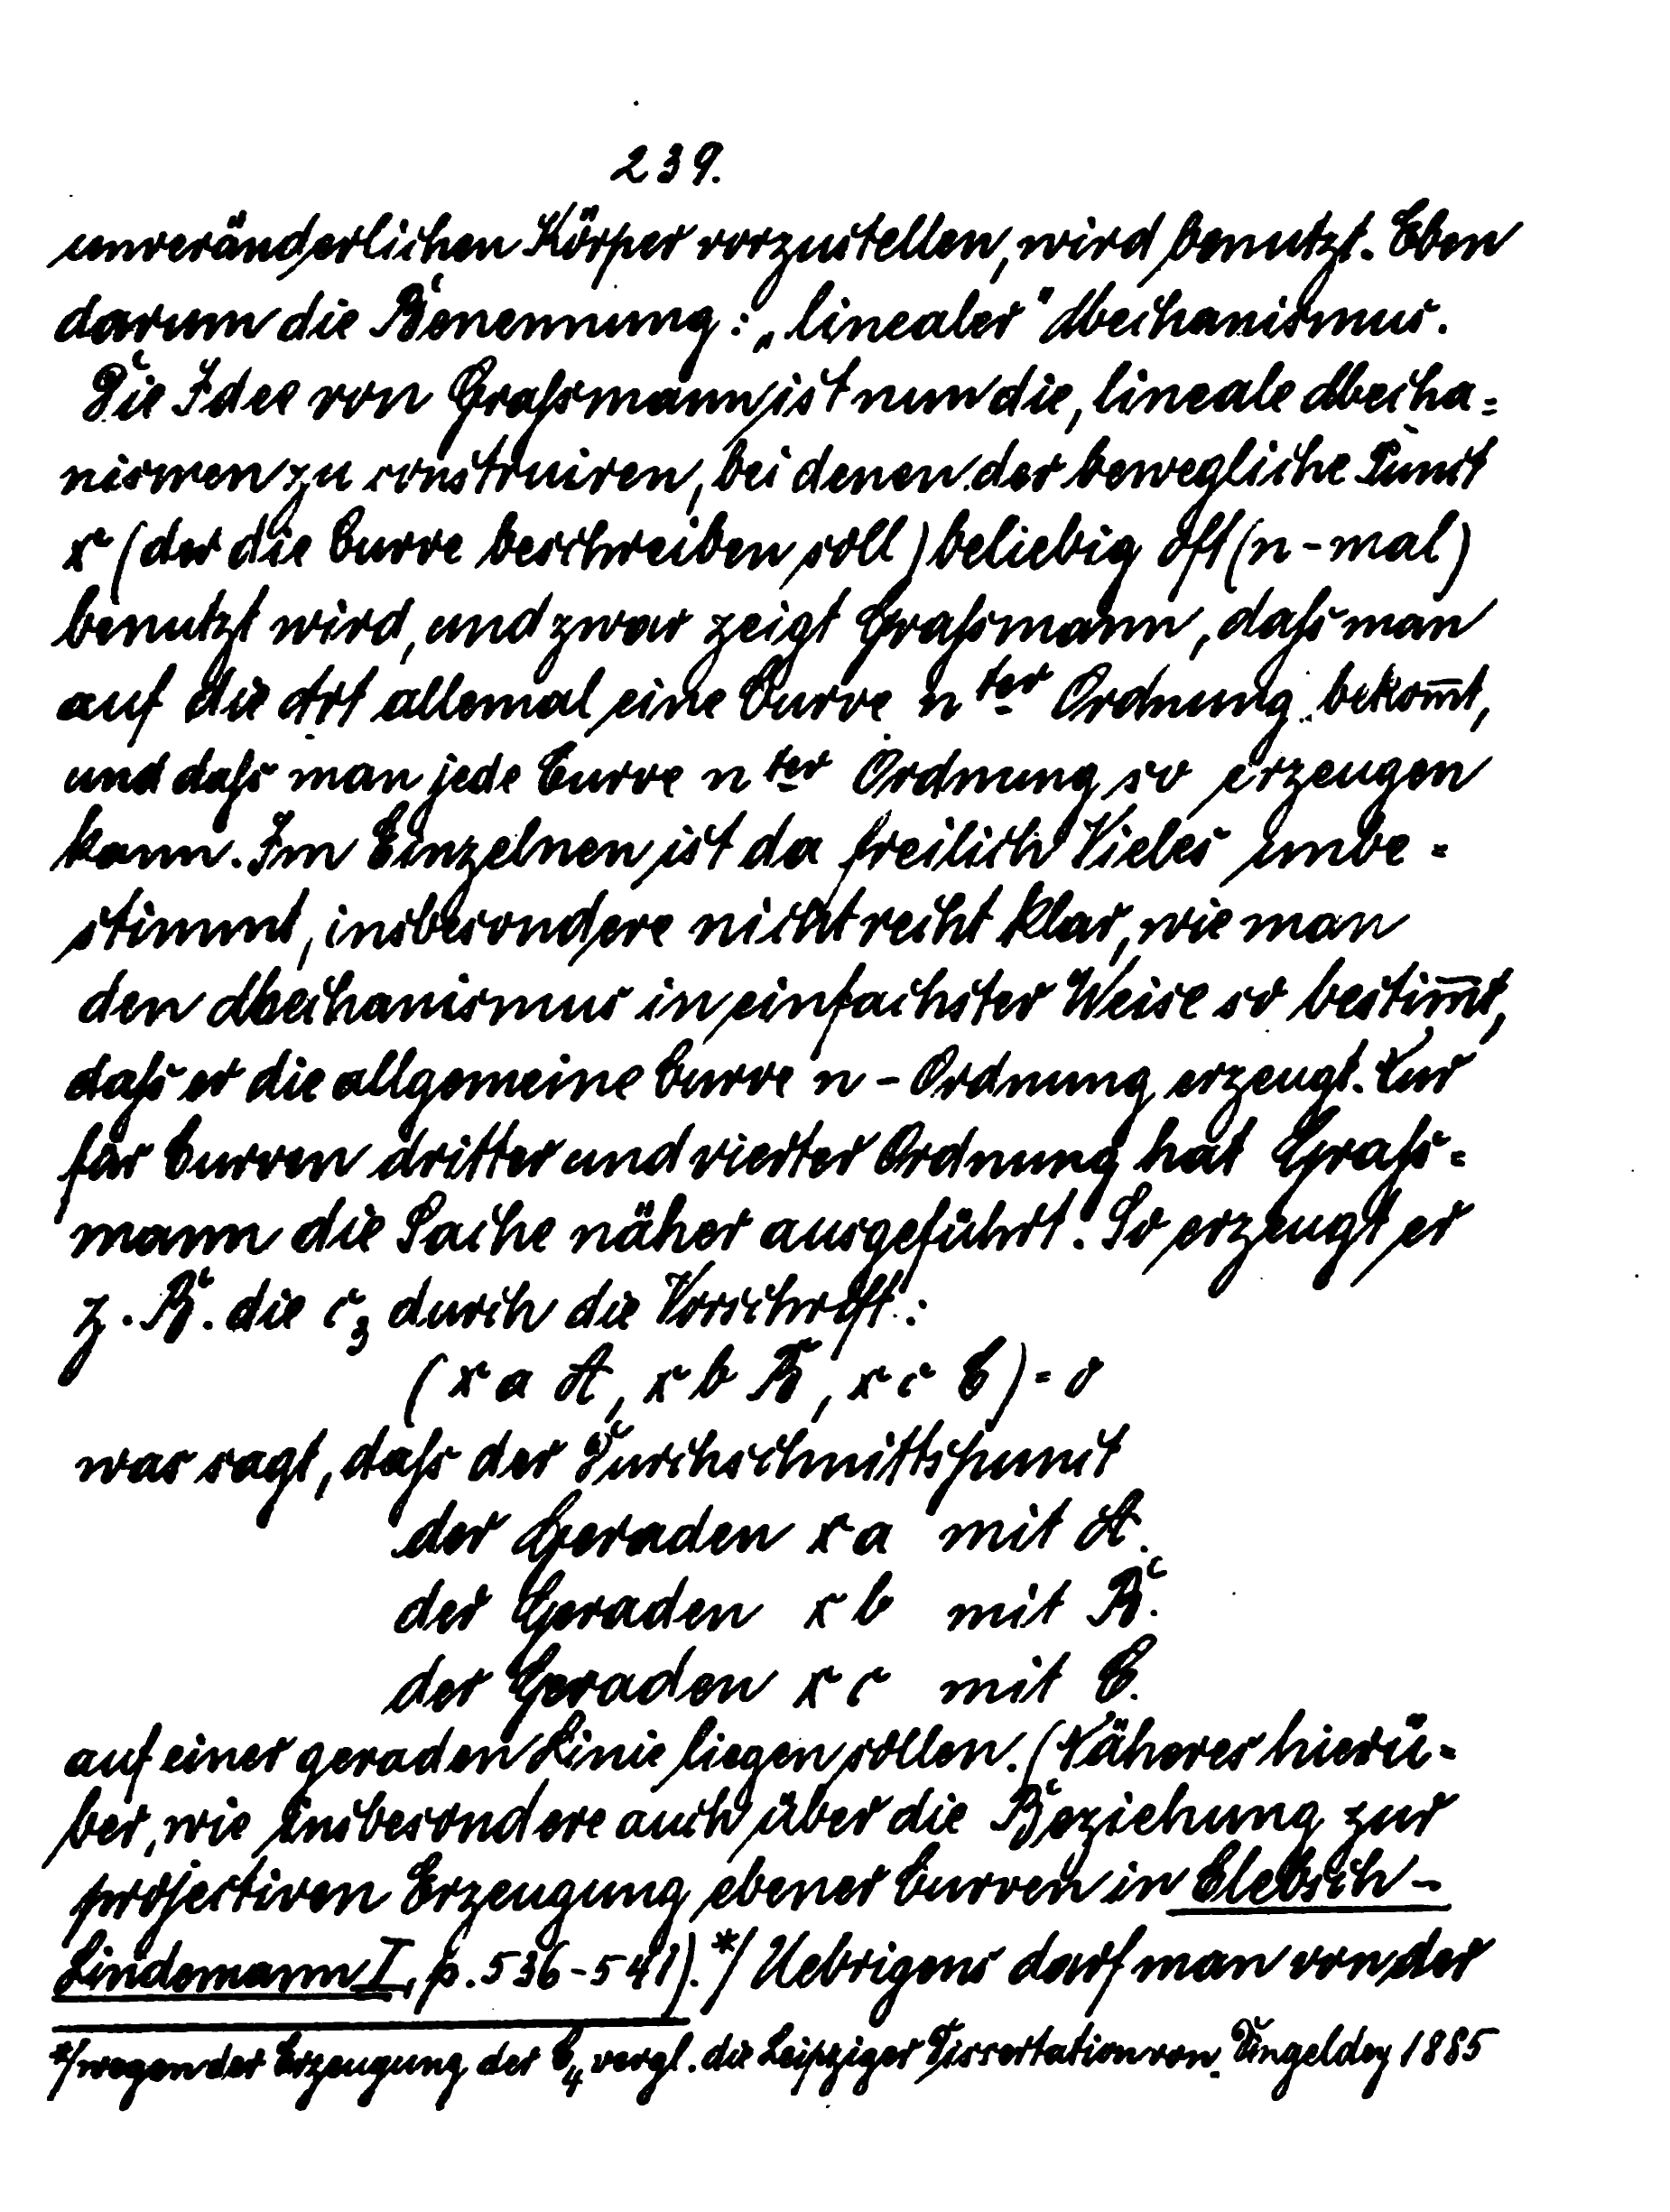 239.
unveränderlichen Körper vorzustellen, wird benutzt. Eben
darum die Benennung: „linealer" Mechanismus.
Die Idee von Graßmann ist nun die, lineale Mecha=
nismen zu construiren, bei denen der bewegliche Punct
x (der die Curve beschreiben soll) beliebig oft (n-mal)
benutzt wird, und zwar zeigt Graßmann, daß man
auf die Art allemal eine Curve n ter Ordnung bekom̅t,
und daß man jede Curve n ter Ordnung so erzeugen
kann. Im Einzelnen ist da freilich Vieles unbe=
stimmt, insbesondere nicht recht klar, wie man
den Mechanismus in einfachster Weise so bestim̅t,
daß er die allgemeine Curve n-Ordnung erzeugt. Nur
für Curven dritter und vierter Ordnung hat Graß=
mann die Sache näher ausgeführt. So erzeugt er
z. B. die C₃ durch die Vorschrift:
(x a A, x b B, x c C) = 0
was sagt, daß der Durchschnittspunct
der Geraden x a mit A.
der Geraden x b mit B.
der Geraden x c mit C.
auf einer geraden Linie liegen sollen. (Näheres hierü=
ber, wie insbesondere auch über die Beziehung zur
projectiven Erzeugung ebener Curven in Clebsch-
Lindemann I, p. 536-541).*/ Uebrigens darf man von der
*/ wegen der Erzeugung der C₄ vergl. die Leipziger Dissertation von Dingeldey 1885